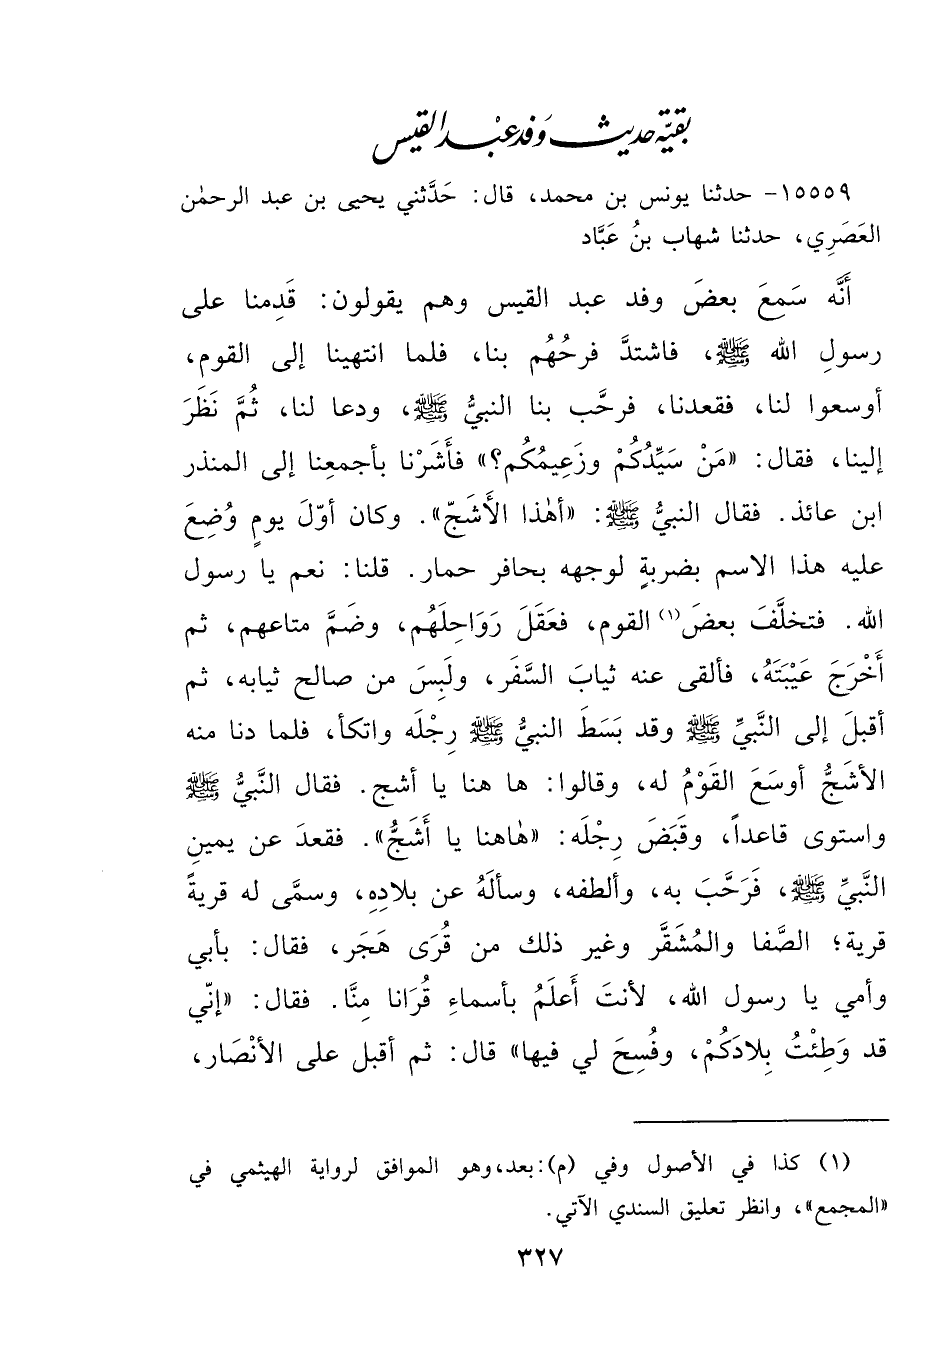 بقية حديث وفد عبد القيس
١٥٥٥٩- حدثنا يونس بن محمد، قال: حَدَّثني يحيى بن عبد الرحمٰن
العَصَرِي، حدثنا شهاب بنُ عَبَّاد
أَنَّه سَمِعَ بعضَ وفد عبد القيس وهم يقولون: قَدِمنا على
رسولِ الله ﷺ، فاشتدَّ فرحُهُم بنا، فلما انتهينا إلى القوم،
أوسعوا لنا، فقعدنا، فرحَّب بنا النبيُّ ﷺ، ودعا لنا، ثُمَّ نَظَرَ
إلينا، فقال: «مَنْ سَيِّدُكُمْ وزَعِيمُكُم؟» فأَشَرْنا بأجمعِنا إلى المنذر
ابن عائذ. فقال النبيُّ ﷺ: «أهٰذا الأَشَجّ». وكان أوّلَ يومٍ وُضِعَ
عليه هذا الاسم بضربةٍ لوجهه بحافر حمار. قلنا: نعم يا رسول
الله. فتخلَّفَ بعضَ(١) القوم، فعَقَلَ رَوَاحِلَهُم، وضَمَّ متاعهم، ثم
أَخْرَجَ عَيْبَتَهُ، فألقى عنه ثيابَ السَّفَر، ولَبِسَ من صالح ثيابه، ثم
أقبلَ إلى النَّبيِّ ﷺ وقد بَسَطَ النبيُّ ﷺ رِجْلَه واتكأ، فلما دنا منه
الأشَجُّ أوسَعَ القَوْمُ له، وقالوا: ها هنا يا أشج. فقال النَّبيُّ ﷺ
واستوى قاعداً، وقَبَضَ رِجْلَه: «هٰاهنا يا أَشَجُّ». فقعدَ عن يمينِ
النَّبيِّ ﷺ، فَرَحَّبَ به، وألطفه، وسألَهُ عن بلادِهِ، وسمَّى له قريةً
قرية؛ الصَّفا والمُشَقَّر وغير ذلك من قُرَى هَجَر، فقال: بأبي
وأمي يا رسول الله، لأنتَ أَعلَمُ بأسماءِ قُرَانا مِنَّا. فقال: «إنّي
قد وَطِئْتُ بِلادَكُمْ، وفُسِحَ لي فيها» قال: ثم أقبل على الأنْصَار،
(١) كذا في الأصول وفي (م): بعد، وهو الموافق لرواية الهيثمي في
«المجمع»، وانظر تعليق السندي الآتي.
٣٢٧